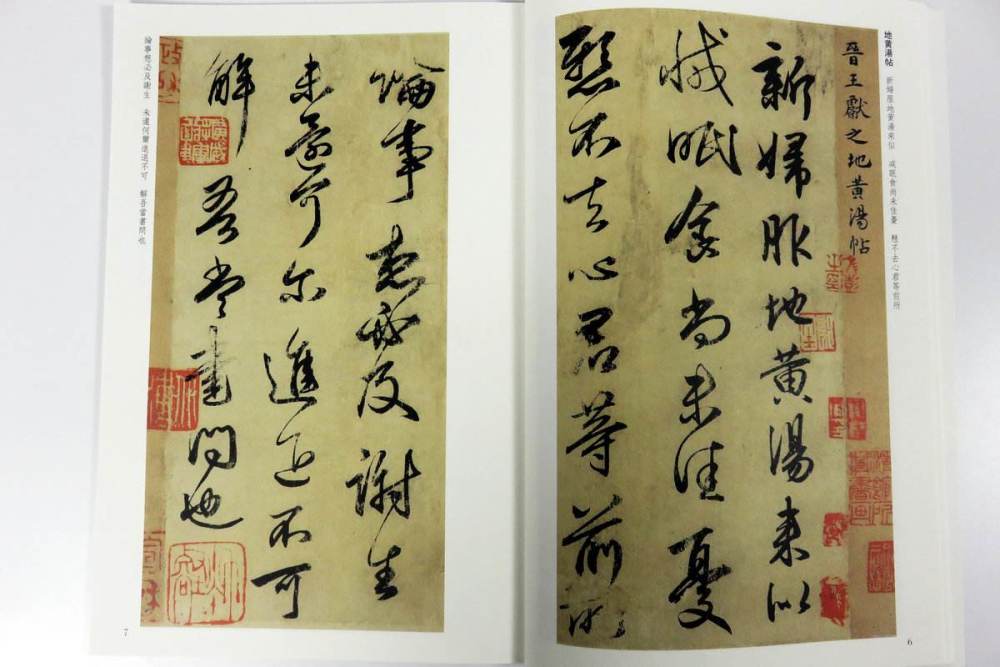 地黄湯帖
新婦服地黄湯來似 減眠食尚未佳憂 懸不去心君等前所
晉王獻之地黃湯帖
新婦服地黃湯來似
減眠食尚未佳憂
懸不去心君等前所
6
論事想必及謝生
未還何尔進退不可
解吾當書問也
論事想必及謝生 未還何爾進退不可 解吾當書問也
7